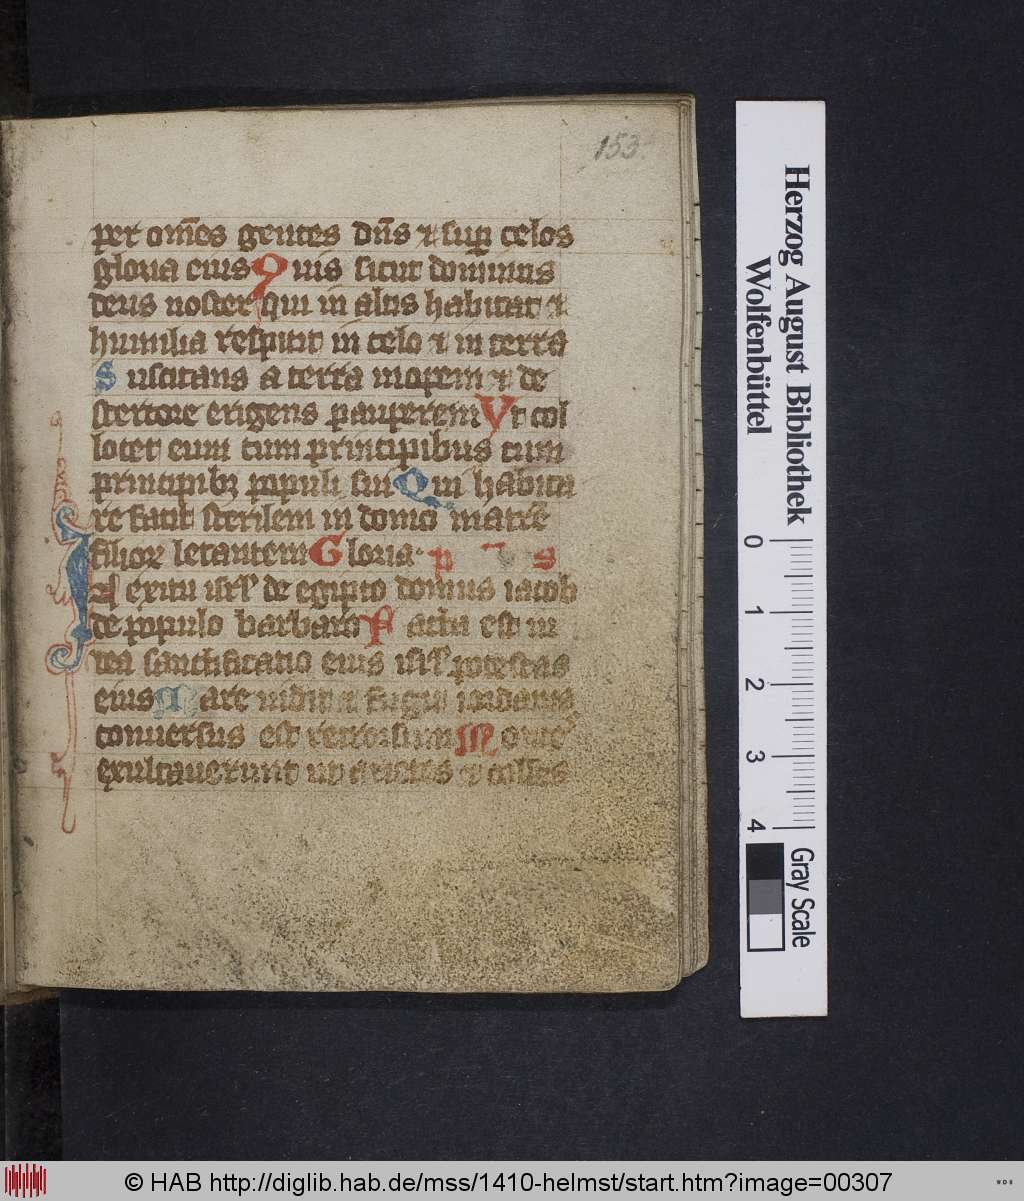 153
per om̄es gentes dn̄s ⁊ suꝑ celos
gloria eius Quis sicut dominus
deus noster qui in altis habitat ⁊
humilia respicit in celo ⁊ in terra
Suscitans a terra inopem ⁊ de
stercore erigens pauperem Vt col
locet eum cum principibus cum
principibꝫ populi sui Qui habita
re facit sterilem in domo matrē
filioꝝ letantem Gloria. p s
In exitu isrl̄ de egipto domus iacob
de populo barbaro Facta est iu
dea sanctificatio eius isrl̄ potestas
eius Mare vidit ⁊ fugit iordanis
conuersus est retrorsum Montes
exultauerunt ut arietes ⁊ colles
Herzog August Bibliothek
Wolfenbüttel
0 1 2 3 4
Gray Scale
© HAB http://diglib.hab.de/mss/1410-helmst/start.htm?image=00307